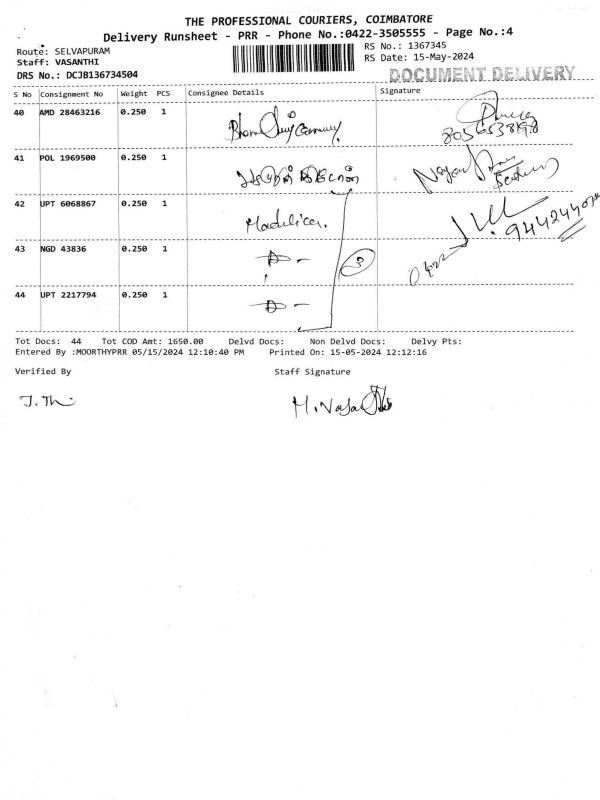 THE PROFESSIONAL COURIERS, COIMBATORE
Delivery Runsheet - PRR - Phone No.:0422-3505555 - Page No.:4
Route: SELVAPURAM
RS No.: 1367345
Staff: VASANTHI
RS Date: 15-May-2024
DRS No.: DCJB136734504
DOCUMENT DELIVERY
S No Consignment No Weight PCS Consignee Details Signature
40 AMD 28463216 0.250 1
41 POL 1969500 0.250 1
42 UPT 6068867 0.250 1
43 NGD 43836 0.250 1
3
44 UPT 2217794 0.250 1
Tot Docs: 44 Tot COD Amt: 1650.00 Delvd Docs: Non Delvd Docs: Delvy Pts:
Entered By :MOORTHYPRR 05/15/2024 12:10:40 PM Printed On: 15-05-2024 12:12:16
Verified By Staff Signature